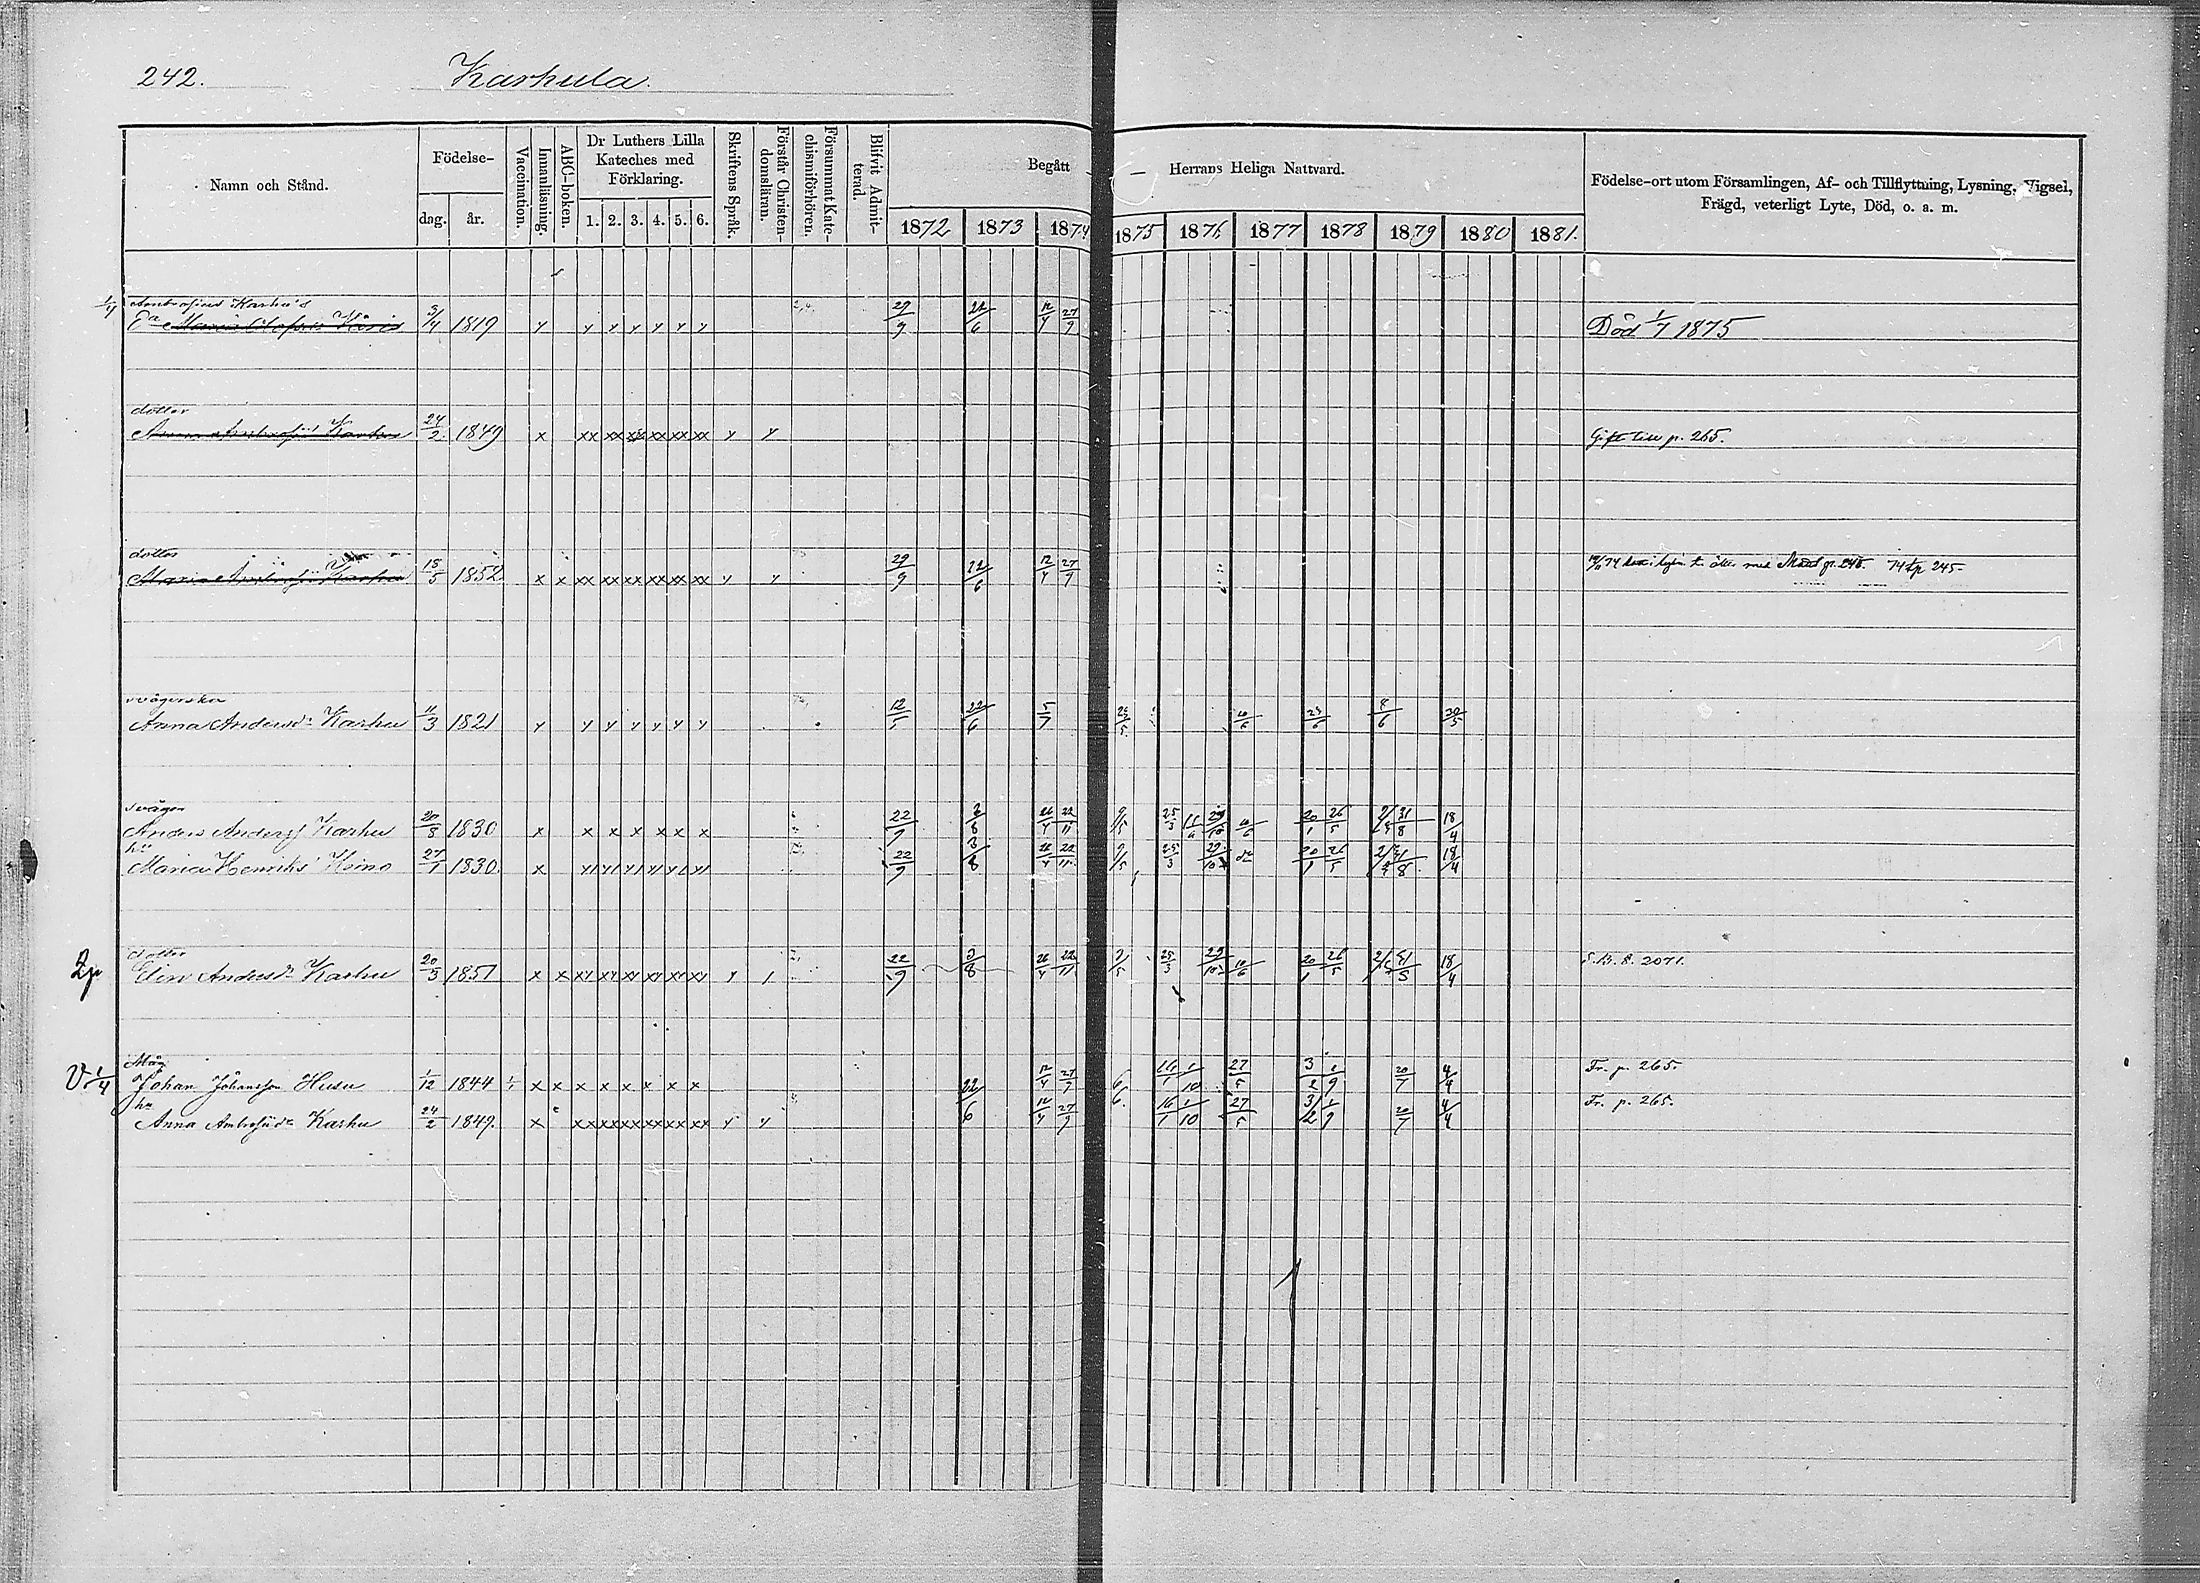 242. Karhula.
Namn och Stånd.
Födelse-
dag. år.
Vaccination.
Innanläsning.
ABC-boken.
Dr Luthers Lilla
Kateches med
Förklaring.
1. 2. 3. 4. 5. 6.
Skriftens Språk.
Förstår Christen-
domsläran.
Försummat Kate-
chismiförhören.
Blifvit Admit-
terad.
Begått Herrans Heliga Nattvard.
1872 1873 1874 1875 1876 1877 1878 1879 1880 1881.
Födelse-ort utom Församlingen, Af- och Tillflyttning, Lysning, Vigsel,
Frägd, veterligt Lyte, Död, o. a. m.
Ambrosius Karhu's
Ea Maria 3/4 1819 y y y y y y y 29/9 22/6 12/4 27/9 Död 1/7 1875
dotter
Anna Karhu 24/2 1849 x xx xx xx xx xx xx y y Gift till p. 265.
dotter
Maria Karhu 18/5 1852 x x xx xx xx xx xx xx y y 29/9 22/6 12/4 27/9 245.
svägerska
Anna Andersdr Karhu 11/3 1821 y y y y y y y 12/5 22/6 5/7 10/6 8/6 30/5
svåger
Anders Andersf Karhu 20/8 1830 x x x x x x x 22/9 3/8 26/4 22/11 9/5 25/3 29/10 10/6 20/1 26/5 31/8 18/4
hu
Maria Henriks Heino 27/1 1830. x 22/9 3/8 26/4 22/11 9/5 25/3 29/10 20/1 26/5 18/4
2p dotter
Elin Andersdr Karhu 20/3 1851 x x 22/9 3/8 26/4 22/11 9/5 25/3 29/10 10/6 20/1 26/5 18/4 S.B. 8. 2071.
Måg
V 1/4 Johan Johansson Husu 1/12 1844 x x x x x x x x 22/6 12/4 27/9 6/6 16/1 1/10 27/5 3/2 1/9 20/7 4/4 Fr. p. 265.
hu
Anna Ambrosiidr Karhu 24/2 1849. x xx xx xx xx xx xx y y 12/4 27/9 16/1 1/10 27/5 3/2 1/9 20/7 4/4 Fr. p. 265.